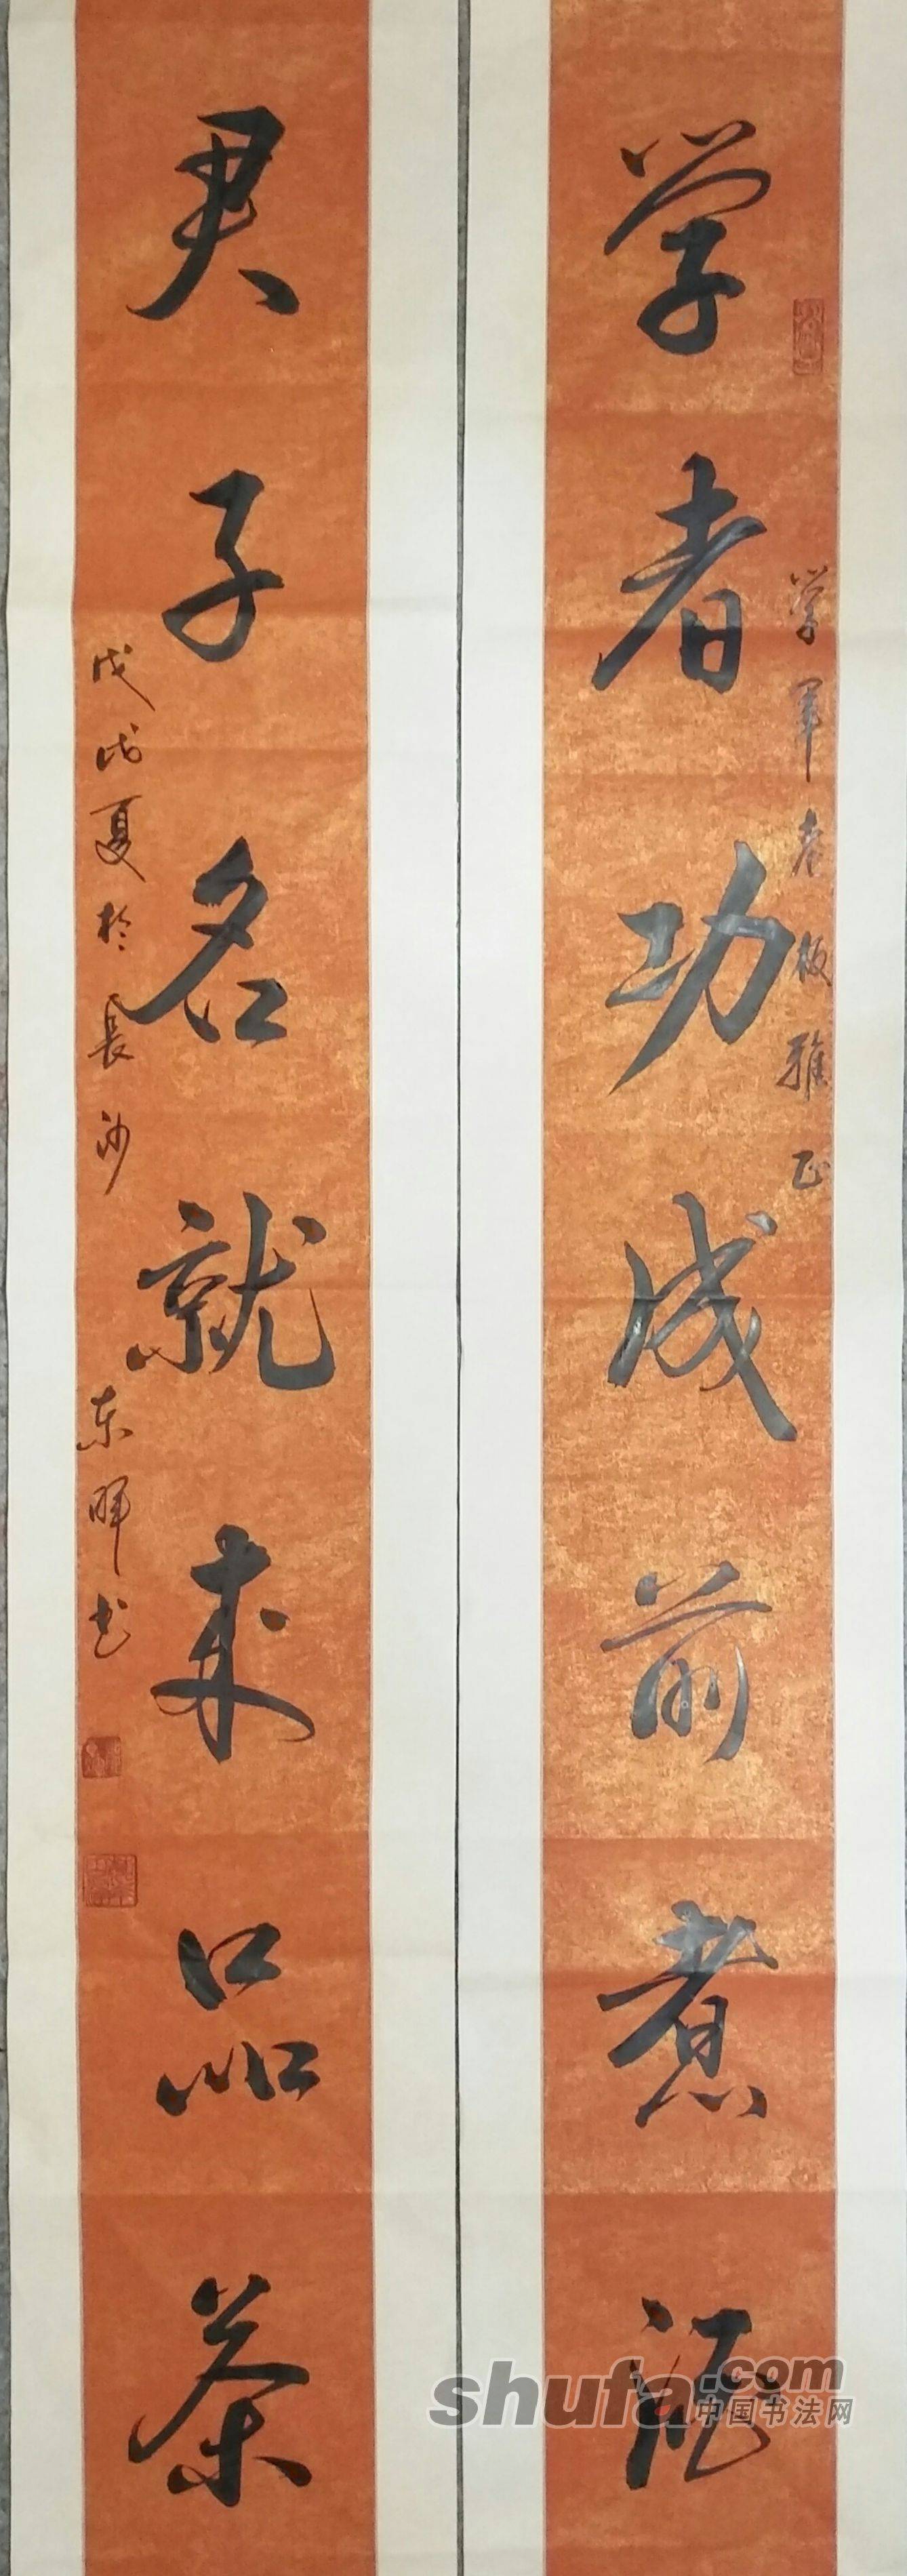 学者功成前煮酒
学军老板雅正
君子名就来品茶
戊戌夏於長沙
东晖书
shufa.com
中国书法网